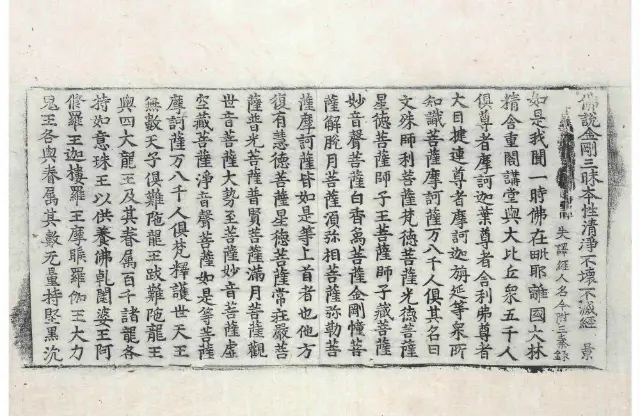 佛說金剛三昧本性清淨不壞不滅經 景
失譯經人名今附三秦錄
如是我聞一時佛在毗耶離國大林
精舍重閣講堂與大比丘衆五千人
俱尊者摩訶迦葉尊者舍利弗尊者
大目揵連尊者摩訶迦旃延等衆所
知識菩薩摩訶薩万八千人俱其名曰
文殊師利菩薩梵德菩薩光德菩薩
星德菩薩師子王菩薩師子藏菩薩
妙音聲菩薩白香象菩薩金剛幢菩
薩解脫月菩薩須弥相菩薩弥勒菩
薩摩訶薩皆如是等上首者也他方
復有慧德菩薩星德菩薩常莊嚴菩
薩普光菩薩普賢菩薩滿月菩薩觀
世音菩薩大勢至菩薩妙音菩薩虛
空藏菩薩淨音聲菩薩如是等菩薩
摩訶薩万八千人俱梵釋護世天王
無數天子俱難陁龍王跋難陁龍王
與四大龍王及其眷属百千諸龍各
持如意珠王以供養佛乹闥婆王阿
脩羅王迦樓羅王摩睺羅伽王大力
鬼王各與眷属其數无量持堅黑沉